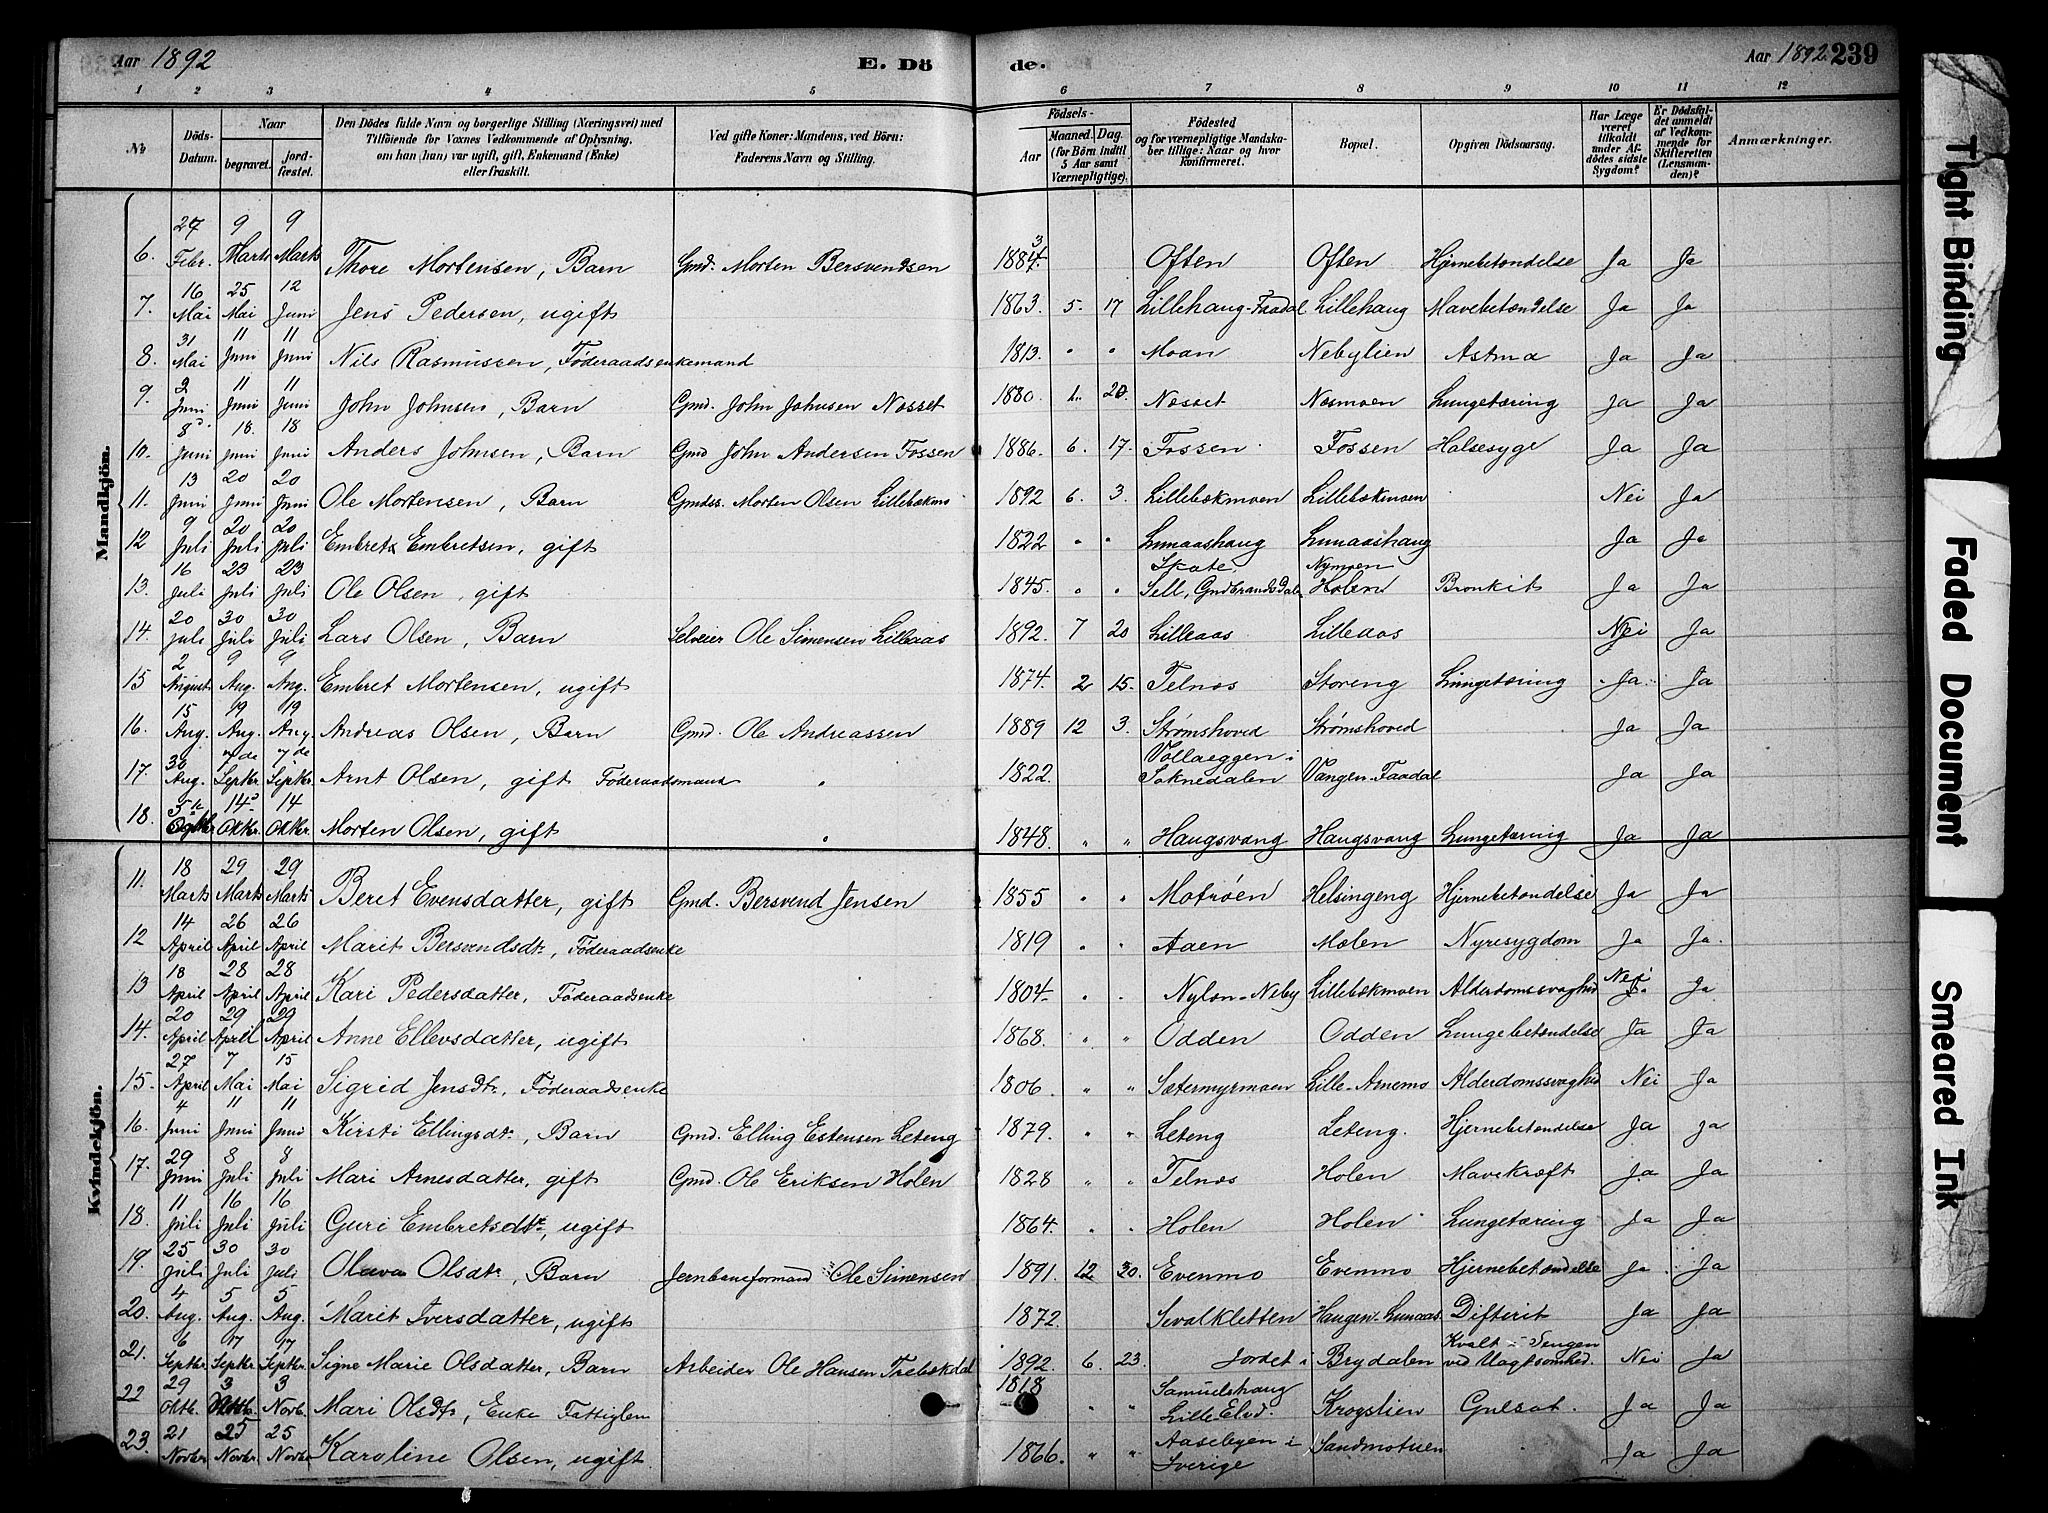 Aar 1892 E. Dö de. Aar 1892. 239
1 2 3 4 5 6 7 8 9 10 11 12
No
Döds-Datum.
Naar
begravet.
jordfæstet.
Den Dödes fulde Navn og borgerlige Stilling (Næringsvei) med
Tilföiende for Voxnes Vedkommende af Oplysning,
om han (hun) var ugift, gift, Enkemand (Enke)
eller fraskilt.
Ved gifte Koner: Mandens, ved Börn:
Faderens Navn og Stilling.
Födsels-
Aar
Maaned. Dag.
(for Börn indtil
5 Aar samt
Værnepligtige).
Födested
og for værnepligtige Mandska-
ber tillige: Naar og hvor
Konfirmeret.
Bopæl.
Opgiven Dödsaarsag.
Har Læge
været
tilkaldt
under Af-
dödes sidste
Sygdom?
Er Dödsfal-
det anmeldt
af Vedkom-
mende for
Skifteretten
(Lensman-
den)?
Anmærkninger.
Mandkjön.
6. 27 Febr. 9 Marts 9 Marts Thore Mortensen, Barn Gmd. Morten Bersvendsen 1883 Often Often Hjernebetændelse Ja Ja
7. 16 Mai 25 Mai 12 Juni Jens Pedersen, ugift 1863 5. 17 Lillehaug-Faadal Lillehaug Mavebetændelse Ja Ja
8. 31 Mai 11 Juni 11 Juni Nils Rasmussen, Føderaadsenkemand 1813. " " Moan Nebylien Astma Ja Ja
9. 2 Juni 11 Juni 11 Juni John Johnsen, Barn Gmd. John Johnsen Nosset 1880. 1. 20. Nosset Nosmoen Lungetæring Ja Ja
10. 8 Juni 18. Juni 18 Juni Anders Johnsen, Barn Gmd John Andersen Fossen 1886. 6. 17. Fossen Fossen Halsesyge Ja Ja
11. 13 Juni 20 Juni 20 Juni Ole Mortensen, Barn Gmdss. Morten Olsen Lillebækmo 1892 6. 3. Lillebækmoen Lillebækmoen Nei Ja
12 9 Juli 20 Juli 20 Juli Embret Embretsen, gift 1822 " " Lunaashaug Lunaashaug Ja Ja
13. 16 Juli 23 Juli 23 Juli Ole Olsen, gift 1845. " " Skate. Sell, Gudbrandsdalen Nymoen Holen Bronkit Ja Ja
14. 20 Juli 30 Juli 30 Juli Lars Olsen, Barn Selveier Ole Simensen Lilleaas 1892. 7 20 Lilleaas Lilleaas Nei Ja
15 2 August 9 Aug. 9 Aug. Embret Mortensen, ugift 1874. 2 15. Telnæs Storeng Lungetæring Ja Ja
16. 15 Aug. 19 Aug. 19 Aug. Andreas Olsen, Barn Gmd. Ole Andreassen 1889 12 3. Strømshoved Strømshoved Ja Ja
17. 30 Aug. 7de Septbr. 7de Septbr. Arnt Olsen, gift Føderaadsmand " 1822. Vollaeggen i Soknedalen Vangen-Faadal Ja Ja
18. 5te Oktbr. 14 Oktbr. 14 Oktbr. Morten Olsen, gift " 1848. " " Haugsvang Haugsvang Lungetæring Ja Ja
Kvindekjön.
11. 18 Marts 29 Marts 29 Marts Beret Evensdatter, gift Gmd. Bersvend Jensen 1855 " " Motrøen Helsingeng Hjernebetændelse Ja Ja
12 14 April 26 April 26 April Marit Bersvendsdt., Føderaadsenke 1819 " " Aaen Molen Nyresygdom Ja Ja.
13 18 April 28 April 28 April Kari Pedersdatter, Føderaadsenke 1804. " " Nylon-Neby Lillebækmoen Alderdomssvaghed Nei Ja
14. 20 April 29 April 29 April Anne Ellevsdatter, ugift 1868. " " Odden Odden Lungebetændelse Ja Ja
15. 27 April 7 Mai 15 Mai Sigrid Jensdt., Føderaadsenke 1806. " " Sætermyrmoen Lille-Arnemo Alderdomssvaghed Nei Ja
16. 4 Juni 11 Juni 11 Juni Kirsti Ellingsdt., Barn Gmd. Elling Estensen Leteng 1879. " " Leteng Leteng. Hjernebetændelse Ja Ja
17. 29 Juni 8 Juli 8 Juli Mari Arnesdatter, gift Gmd. Ole Eriksen Holen 1828 " " Telnæs Holen Mavekræft Ja Ja
18. 11 Juli 16 Juli 16 Juli Guri Embretsdt., ugift 1864. " " Holen Holen Lungetæring Ja Ja
19. 25 Juli 30 Juli 30 Juli Oluva Olsdt., Barn Jernbaneformand Ole Simensen 1891. 12 30. Evenmo Evenmo Hjernebetændelse Ja Ja
20. 4 Aug. 5 Aug. 5 Aug. Marit Iversdatter, ugift 1872. Sevalkletten Haugen-Lunaas Difterit Ja Ja
21. 6 Septbr 17 Septbr 17 Septbr Signe Marie Olsdatter, Barn Arbeider Ole Hansen Trebækdal 1892. 6. 23. Jordet i Brydalen Kvalt i Sengen ved Uagtsomhed. Nei Ja
22 29 Oktb. 3 3 Novb. Mari Olsdt, Enke Fattiglem 1818 " " Samuelshaug Lille Elvd. Krogslien Gulsot. Ja Ja
23. 21 Novbr 25 Novbr 25 Novbr Karoline Olsen, ugift 1866. " " Aasebyen i Sverige Sandmotuen Ja Ja
Tight Binding
Faded Document
Smeared Ink